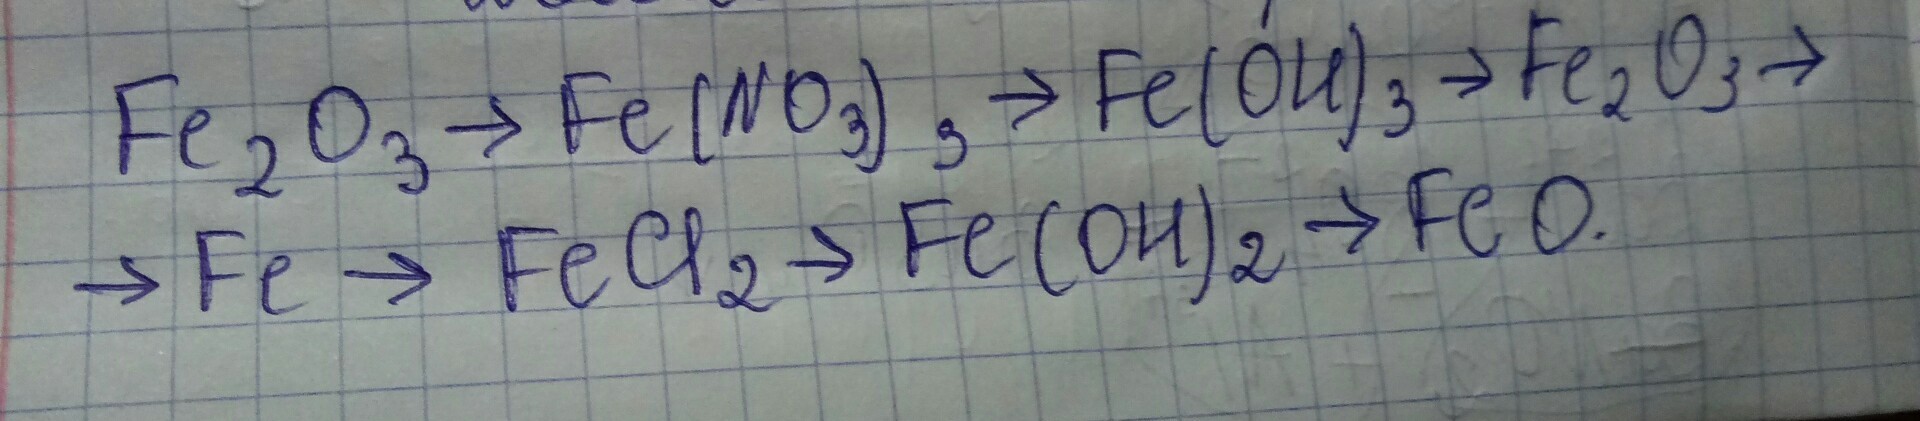 Fe₂O₃ → Fe(NO₃)₃ → Fe(OH)₃ → Fe₂O₃ →
→ Fe → FeCl₂ → Fe(OH)₂ → FeO.